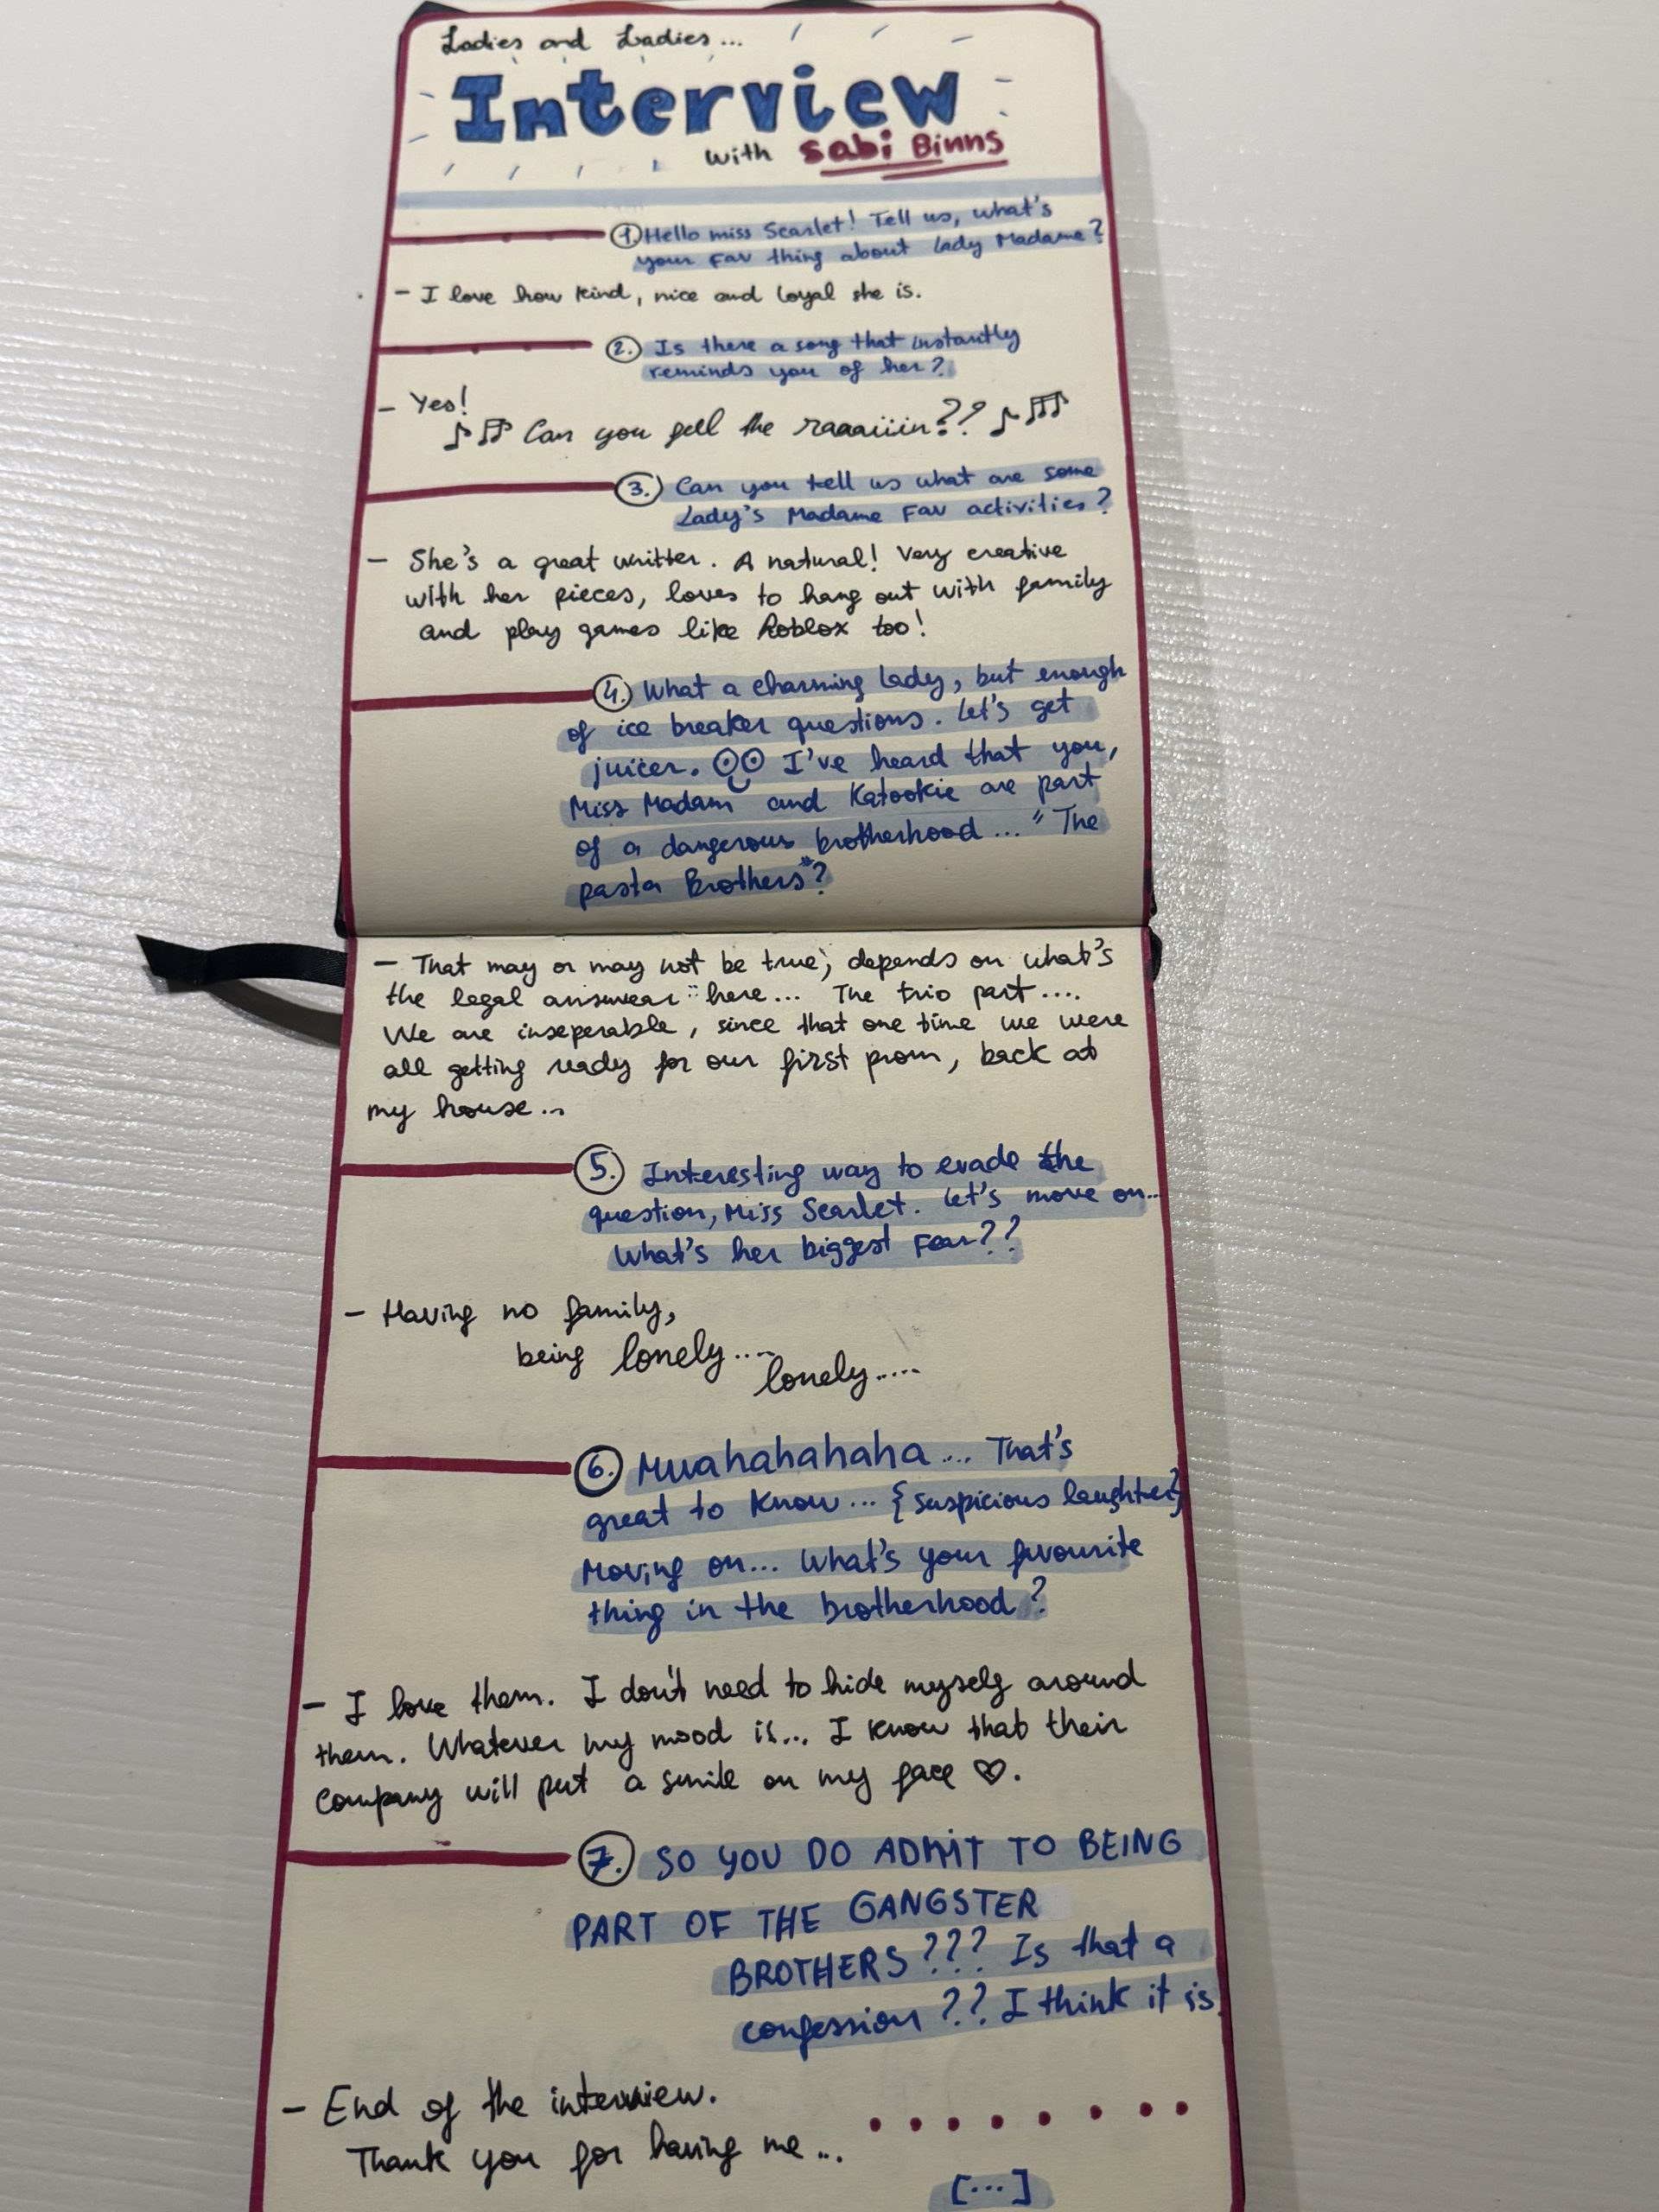 Ladies and Ladies...
Interview
with Sabi Binns
1. Hello miss Scarlet! Tell us, what's
your Fav thing about Lady Madame?
- I love how kind, nice and loyal she is.
2. Is there a song that instantly
reminds you of her?
- Yes!
♪ ♫ Can you gell the raaaiiin?? ♪ ♫
3. Can you tell us what are some
Lady's Madame Fav activities?
- She's a great writter. A natural! Very creative
with her pieces, loves to hang out with family
and play games like Roblox too!
4. What a charming lady, but enough
of ice breaker questions. Let's get
juicer. I've heard that you,
Miss Madam and Katookie are part
of a dangerous brotherhood... "The
pasta Brothers"?
- That may or may not be true, depends on what's
the legal answear here... The trio part....
We are inseperable, since that one time we were
all getting ready for our first prom, back at
my house...
5. Interesting way to evade the
question, Miss Scarlet. Let's move on...
What's her biggest Fear??
- Having no family,
being lonely....
lonely....
6. Muahahahaha... That's
great to know... {suspicious laughter}
Moving on... What's your favourite
thing in the brotherhood?
- I love them. I don't need to hide myself around
them. Whatever my mood is... I know that their
company will put a smile on my face ♡.
7. SO YOU DO ADMIT TO BEING
PART OF THE GANGSTER
BROTHERS??? Is that a
confession?? I think it is.
- End of the interview.
Thank you for having me...
[...]